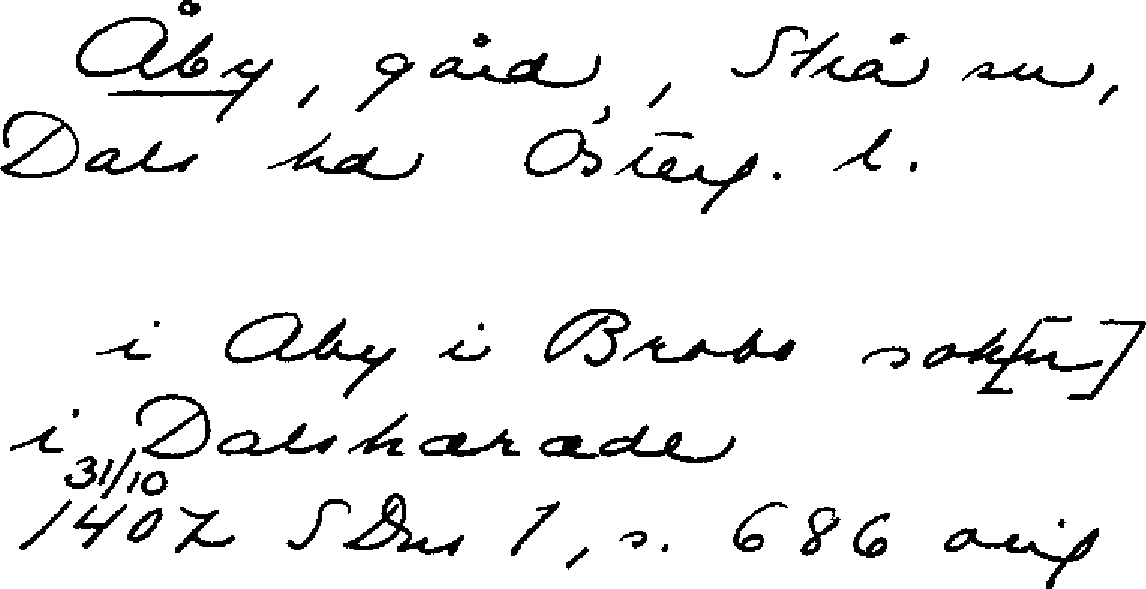 Åby, gård, Strå sn,
Dals hd Österg. l.
i Aby i Brobo sok[n]
i Dalshæræde
31/10
1407 SDns 1, s. 686 orig